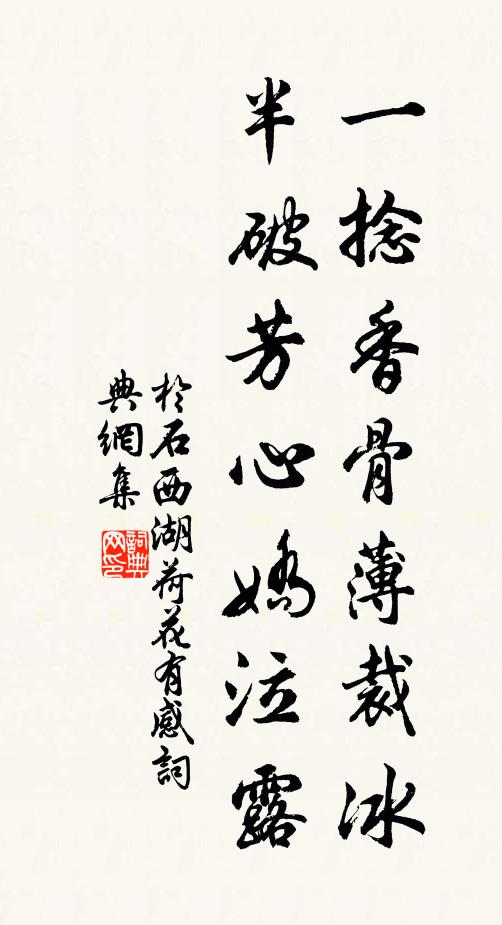 一捻香骨薄裁冰
半破芳心嬌泣露
於石西湖荷花有感詞
典網集
詞典
网印